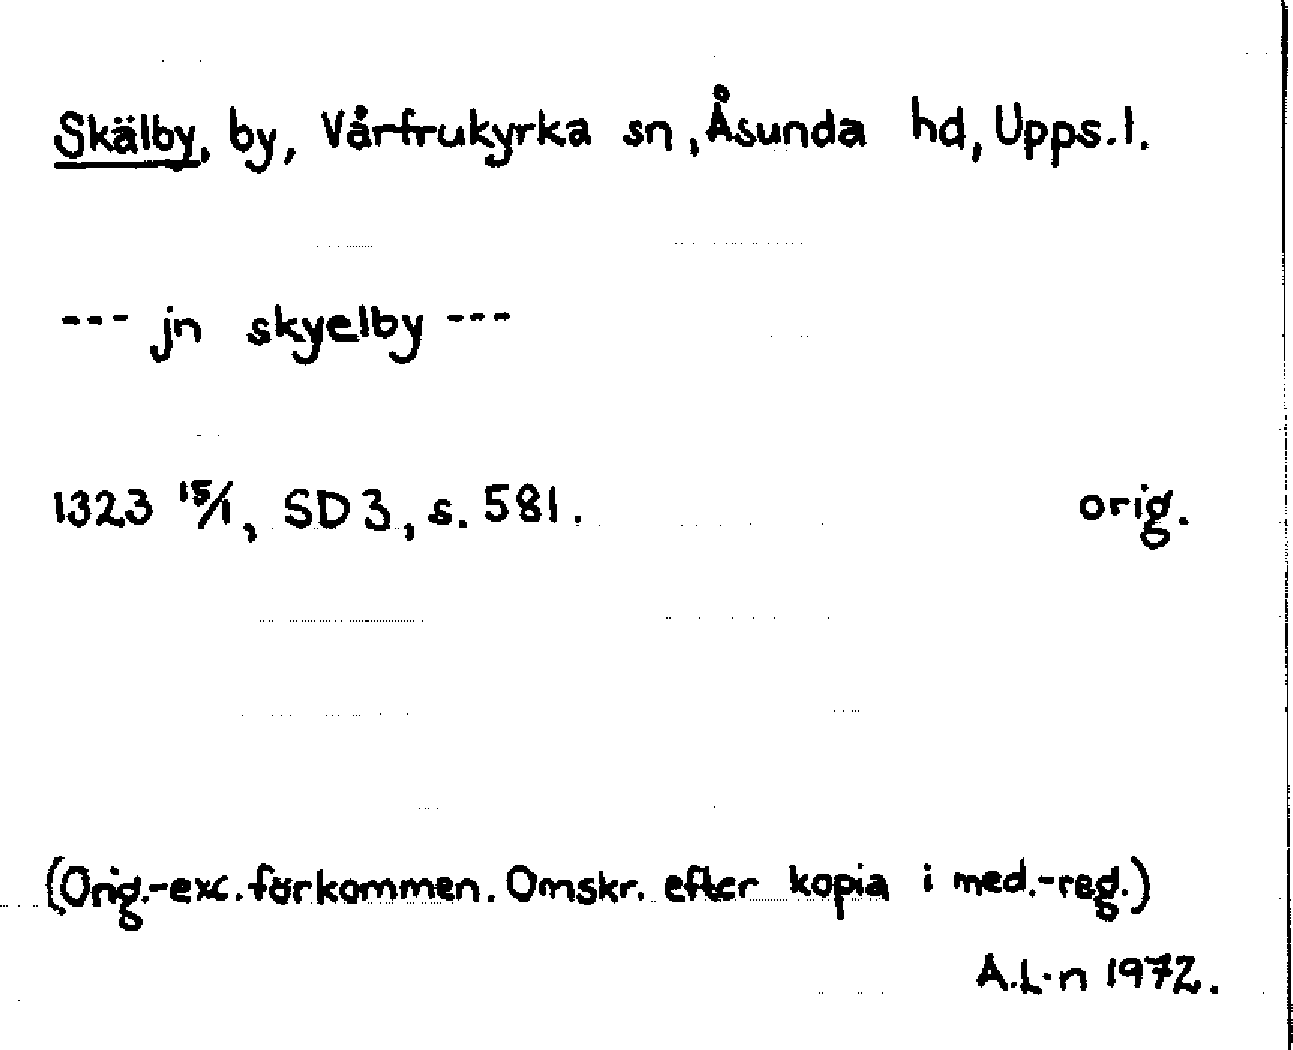 Skälby, by, Vårfrukyrka sn, Åsunda hd, Upps.l.
--- jn skyelby ---
1323 15/1, SD 3, s. 581. orig.
(Orig.-exc. förkommen. Omskr. efter kopia i med.-reg.)
A.L-n 1972.